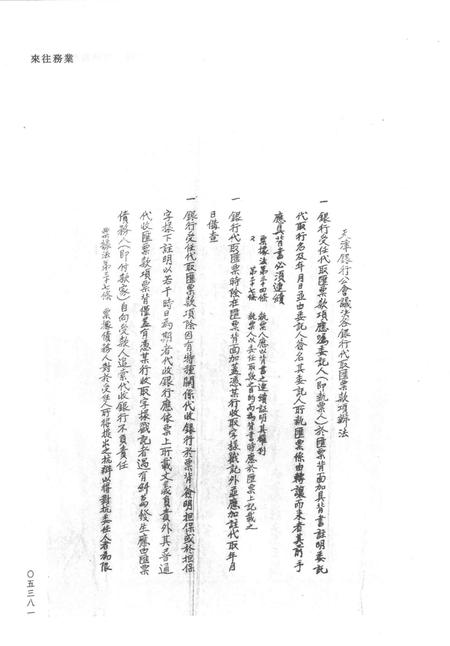 業務往來
天津銀行公會議決各銀行代取匯票款項辦法
一 銀行受任代取匯票款項應請委託人（即執票人）於匯票背面加具背書註明委託
代取行名及年月日並由委託人簽名其委託人所執匯票係由轉讓而來者其前手
應具背書必須連續
票據法第三十四條 執票人應以背書之連續証明其權利
〃 第三十七條 執票人以委任取款之目的而為背書時應於匯票上記載之
一 銀行代取匯票時除在匯票背面加蓋憑某行收取字樣戳記外並應加註代取年月
日備查
一 銀行受任代取匯票款項除因有特種關係代收銀行於票背簽明担保或於担保
字樣下註明以若干時日為期者代收銀行應依票上所載文義負責外其普通
代收匯票款項票背僅蓋有憑某行收取字樣戳記者遇有糾葛發生應由匯票
債務人（即付款家）自向受款人追索代收銀行不負責任
票據法第三十七條 票據債務人對於受任人所得提出之抗辯以得對抗委任人者為限
〇五三八一